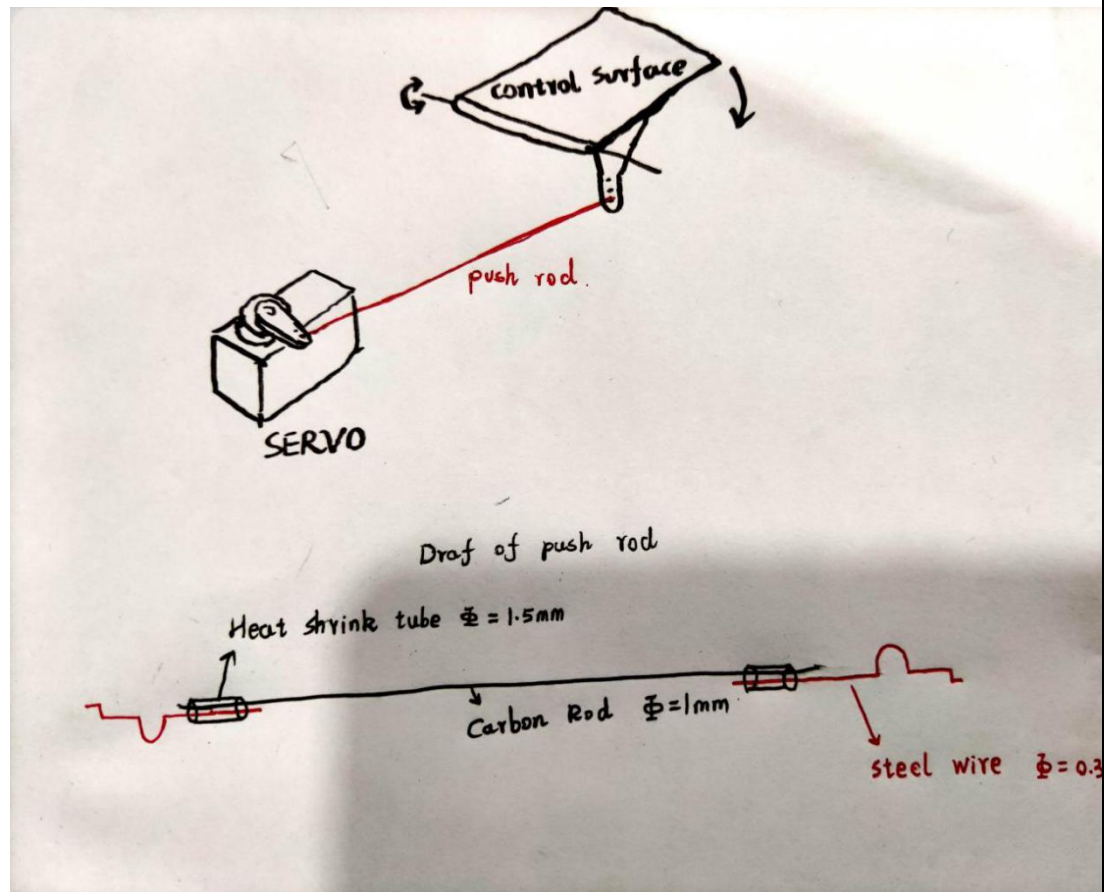 control surface
push rod.
SERVO
Draf of push rod
Heat shrink tube Φ = 1.5mm
Carbon Rod Φ=1mm
steel wire Φ = 0.3